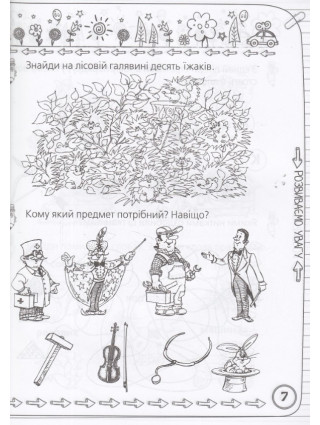 Знайди на лісовій галявині десять їжаків.
Кому який предмет потрібний? Навіщо?
РОЗВИВАЄМО УВАГУ
7